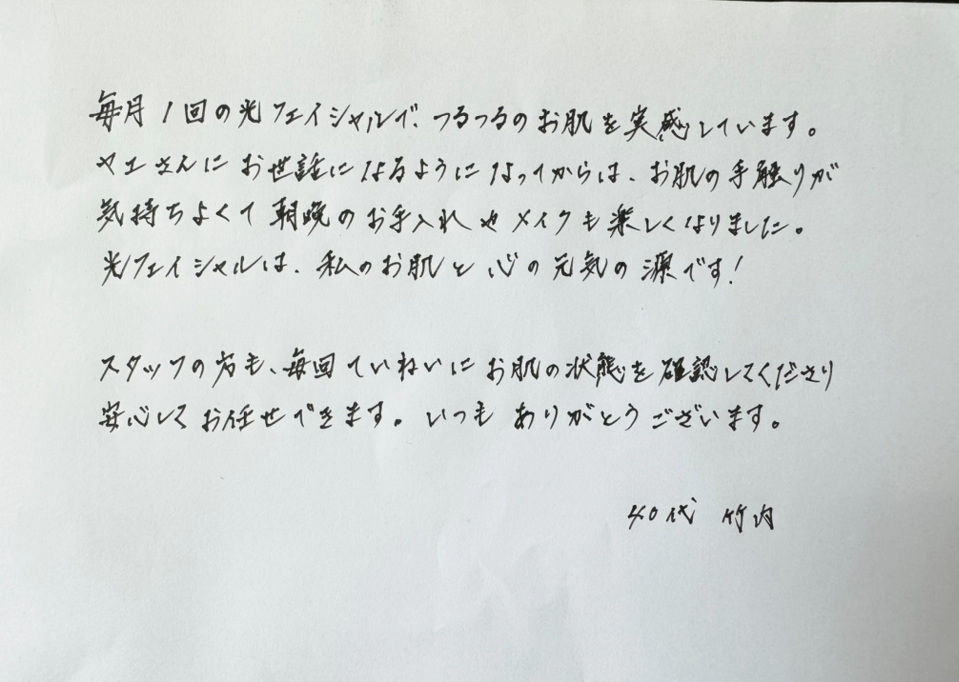 毎月1回の光フェイシャルで、つるつるのお肌を実感しています。
ヤエさんにお世話になるようになってからは、お肌の手触りが
気持ちよくて朝晩のお手入れやメイクも楽しくなりました。
光フェイシャルは、私のお肌と心の元気の源です!
スタッフの方も、毎回ていねいにお肌の状態を確認してくださり
安心してお任せできます。いつもありがとうございます。
40代 竹内